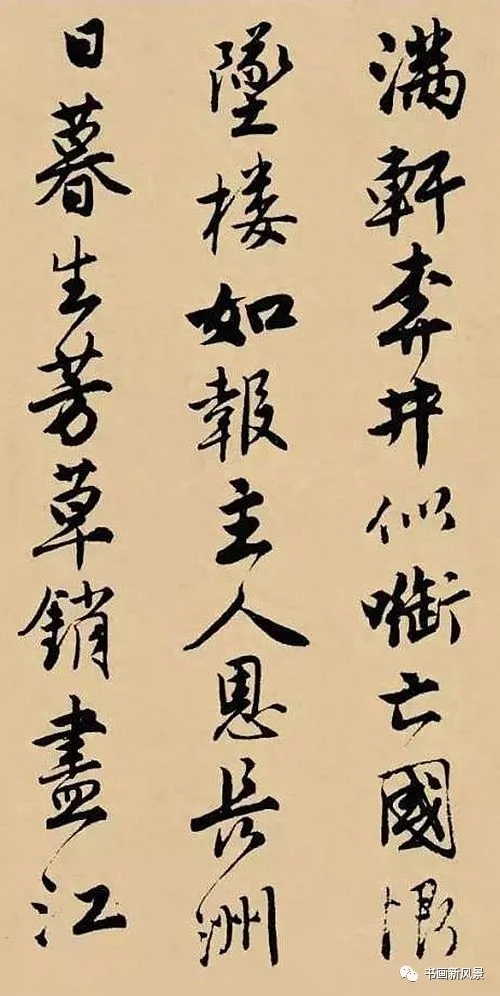 滿軒奔井似啣亡國恨
墜樓如報主人恩長洲
日暮生芳草銷盡江
书画新风景